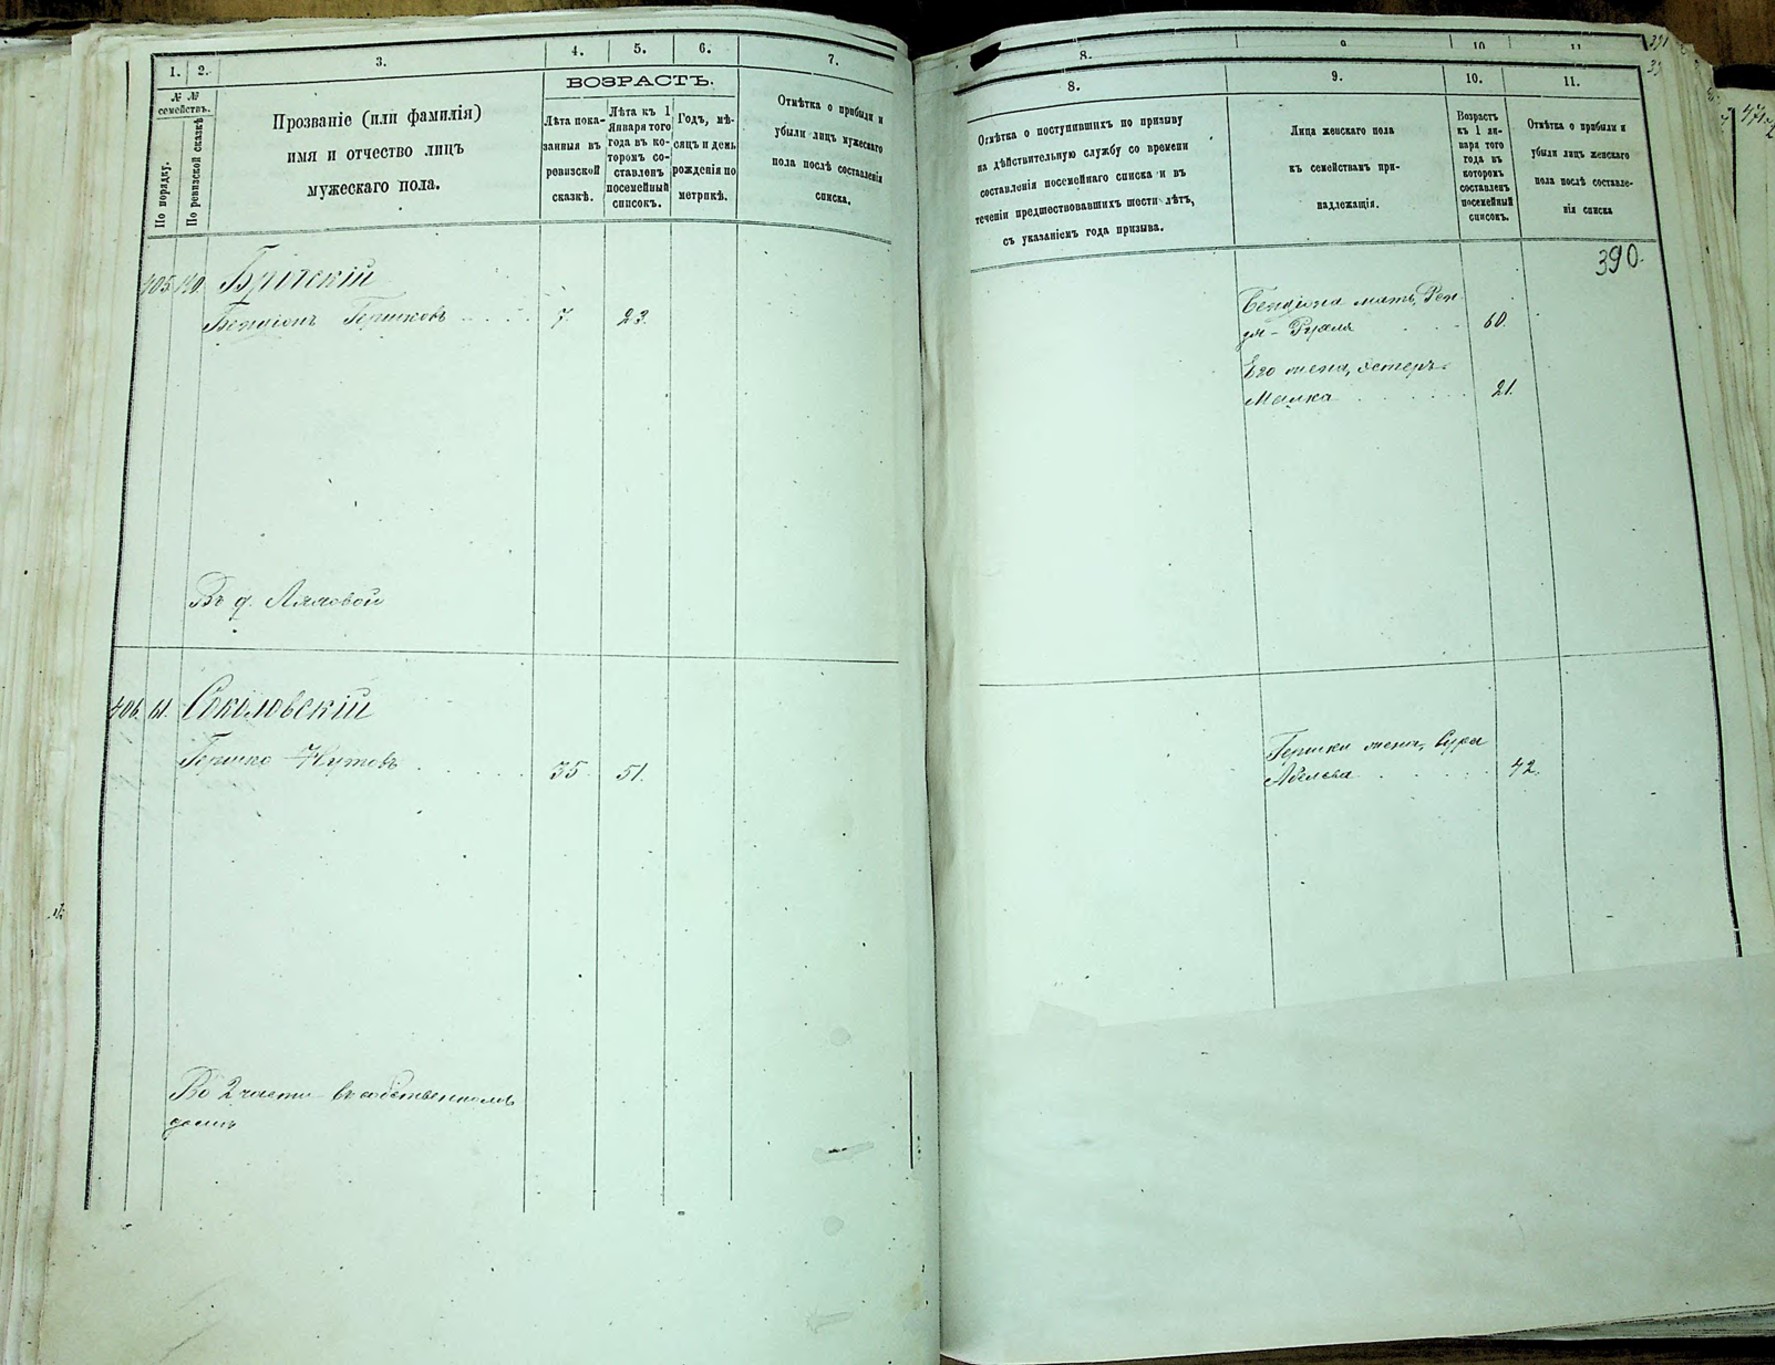 1.
2.
3.
4.
5.
6.
7.
№ №
семействъ.
По порядку.
По ревизской сказкѣ
Прозваніе (или фамилія)
имя и отчество лицъ
мужескаго пола.
ВОЗРАСТЪ.
Лѣта пока-
занныя въ
ревизской
сказкѣ.
Лѣта къ 1
Января того
года въ ко-
торомъ со-
ставленъ
посемейный
списокъ.
Годъ, мѣ-
сяцъ и день
рожденія по
метрикѣ.
Отмѣтка о прибыли и
убыли лицъ мужескаго
пола послѣ составленія
списка.
405. 140.
Бенціонъ Гершковъ 7. 23.
Въ д.
406. 61. Соколовскій
Гершко Нутовъ 35. 51.
Во 2 части въ собственномъ
домѣ
8. 9. 10. 11.
391
8.
9.
10.
11.
Отмѣтка о поступившихъ по призыву
на дѣйствительную службу со времени
составленія посемейнаго списка и въ
теченіи предшествовавшихъ шести лѣтъ,
съ указаніемъ года призыва.
Лица женскаго пола
къ семействамъ при-
надлежащія.
Возрастъ
къ 1 ян-
варя того
года въ
которомъ
составленъ
посемейный
списокъ.
Отмѣтка о прибыли и
убыли лицъ женскаго
пола послѣ составле-
нія списка
390.
Бенціона мать,
60.
Его жена, Эстеръ-
Малка 21.
Гершки жена, Сура
Абелева 42.